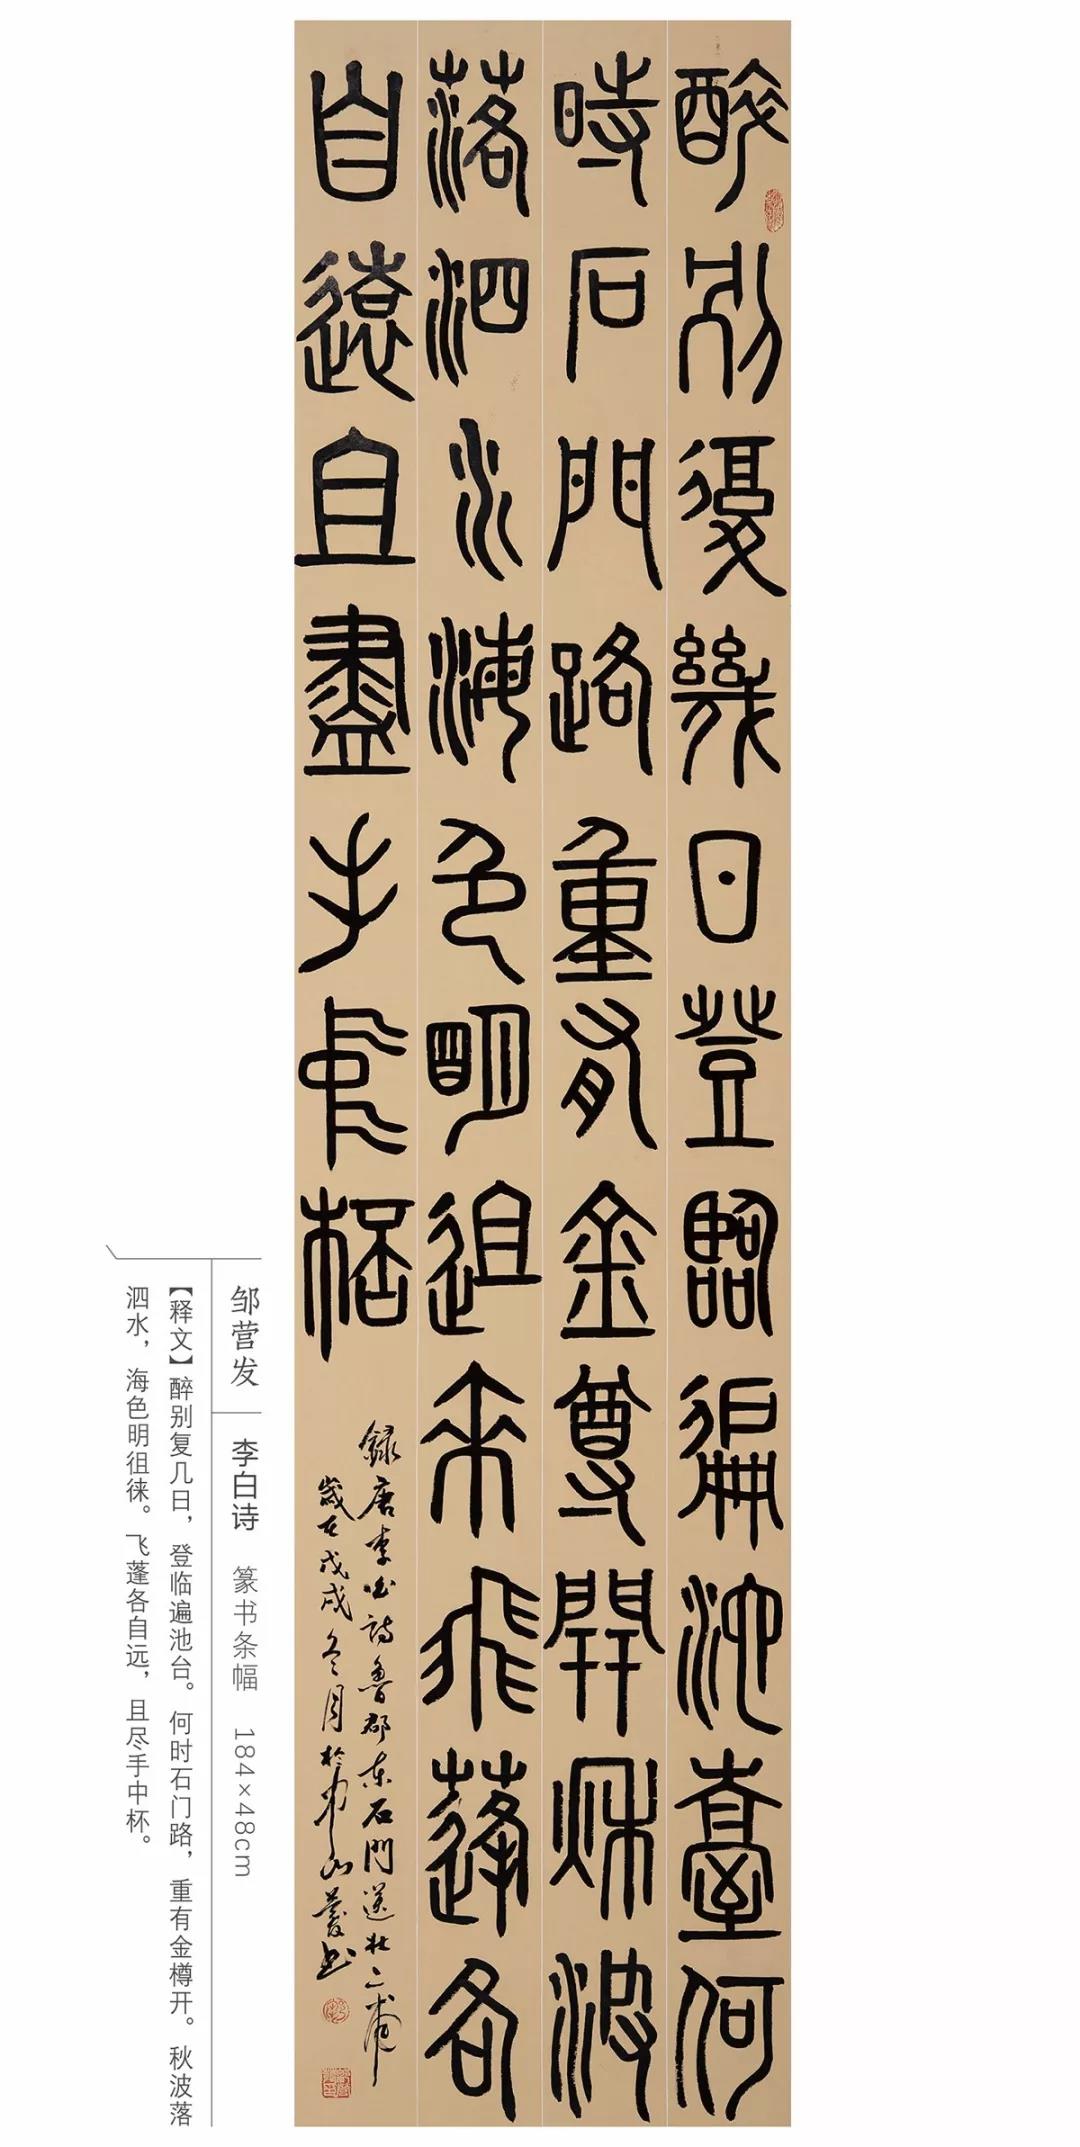 醉別復幾日登臨徧池臺何
時石門路重有金尊開秋波
落泗水海色明徂來飛蓬各
自遠且盡手中桮
錄唐李白詩魯郡東石門送杜二甫
歲在戊戌冬月於山營書
邹营发 李白诗 篆书条幅 184×48cm
【释文】醉别复几日，登临遍池台。何时石门路，重有金樽开。秋波落
泗水，海色明徂徕。飞蓬各自远，且尽手中杯。